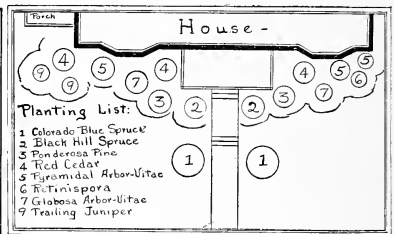 Porch
House -
4
9
9
5
7
4
3
2
2
3
4
7
5
5
6
1
1
Planting List:
1 Colorado Blue Spruce
2 Black Hill Spruce
3 Ponderosa Pine
4 Red Cedar
5 Pyramidal Arbor-Vitae
6 Retinispora
7 Globosa Arbor-Vitae
9 Trailing Juniper